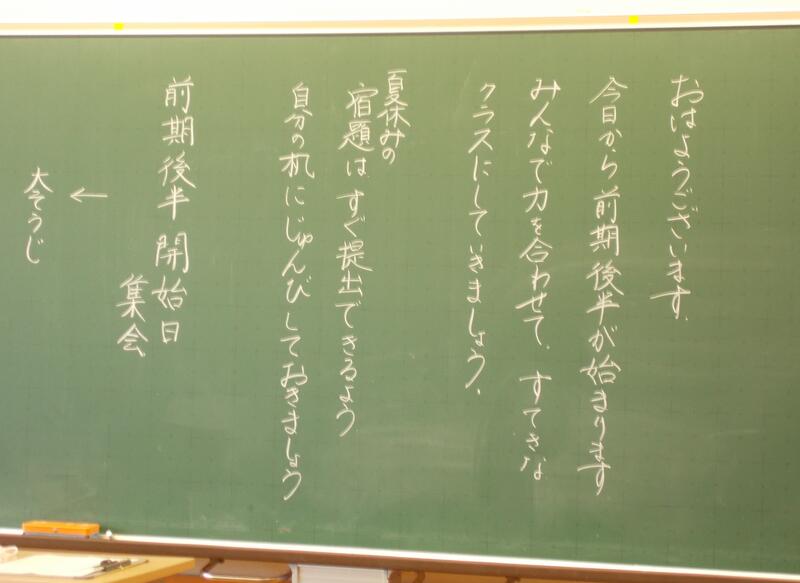 おはようございます.
今日から前期後半が始まります
みんなで力を合わせて、すてきな
クラスにしていきましょう、
夏休みの
宿題は すぐ提出できるよう
自分の机にじゅんびしておきましょう
前期後半 開始日
集会
←
大そうじ